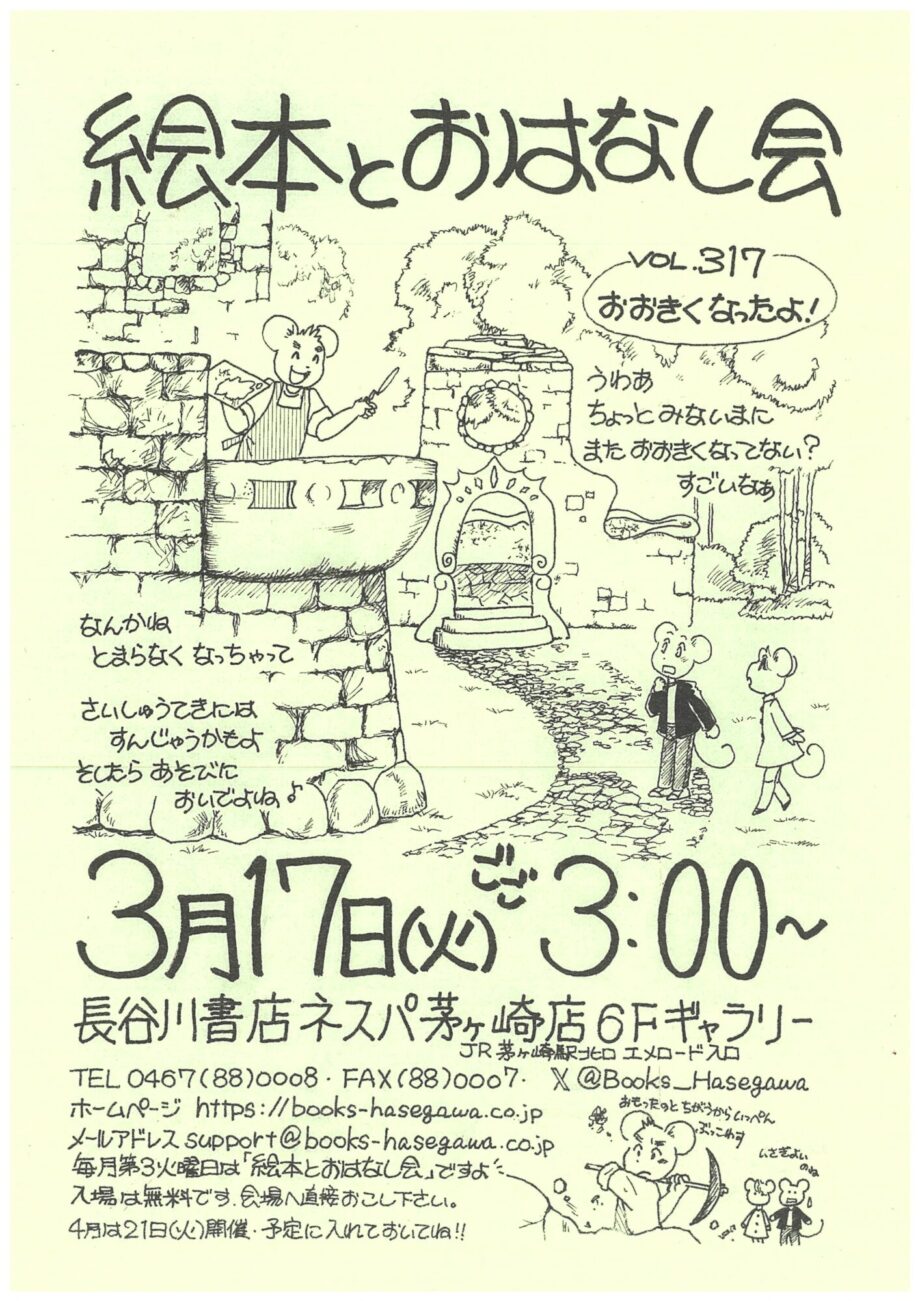 絵本とおはなし会
VOL.317
おおきくなったよ!
うわあ
ちょっとみないまに
またおおきくなってない?
すごいなぁ
なんかね
とまらなくなっちゃって
さいしゅうてきには
すんじゅうかもよ
そしたらあそびに
おいでよね♪
3月17日(火)ごご3:00~
長谷川書店ネスパ茅ヶ崎店6Fギャラリー
JR茅ヶ崎駅北口 エメロード入口
TEL 0467(88)0008・FAX(88)0007・ X @Books_Hasegawa
ホームページ https://books-hasegawa.co.jp
メールアドレス support@books-hasegawa.co.jp
毎月第3火曜日は「絵本とおはなし会」ですよ
入場は無料です。会場へ直接おこし下さい。
4月は21日(火)開催・予定に入れておいてね!!
おもったのとちがうからいっぺん
ぶっこわす
いさぎよい
のね